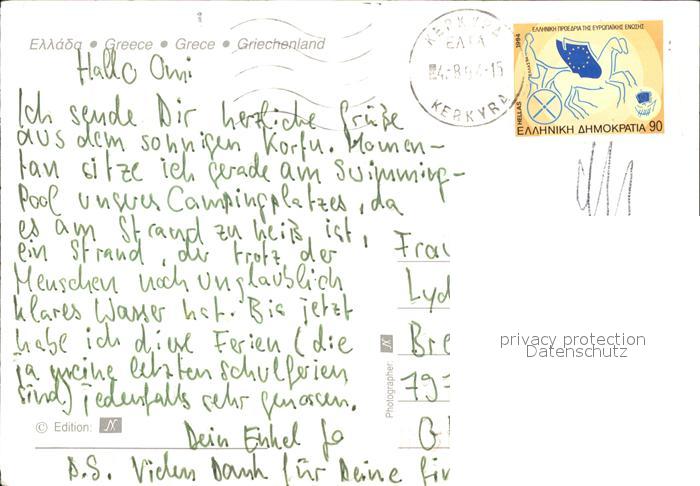 Ελλάδα • Greece • Grece • Griechenland
ΚΕΡΚΥΡΑ
ΕΛΤΑ
4.-8.94-15
KERKYRA
1994 ΕΛΛΗΝΙΚΗ ΠΡΟΕΔΡΙΑ ΤΗΣ ΕΥΡΩΠΑΪΚΗΣ ΕΝΩΣΗΣ
HELLAS
ΕΛΛΗΝΙΚΗ ΔΗΜΟΚΡΑΤΙΑ 90
Hallo Omi
Ich sende Dir herzliche Grüße
aus dem sonnigen Korfu. Momen-
tan sitze ich gerade am Swimming-
Pool unseres Campingplatzes, da
es am Strand zu heiß ist,
ein Strand, der trotz der
Menschen noch unglaublich
klares Wasser hat. Bis jetzt
habe ich diese Ferien (die
ja meine letzten Schulferien
sind) jedenfalls sehr genossen.
Dein Enkel Jo
P.S. Vielen Dank für Deine
Frau
Lyd
Bre
797
privacy protection
Datenschutz
Photographer: N
© Edition: N